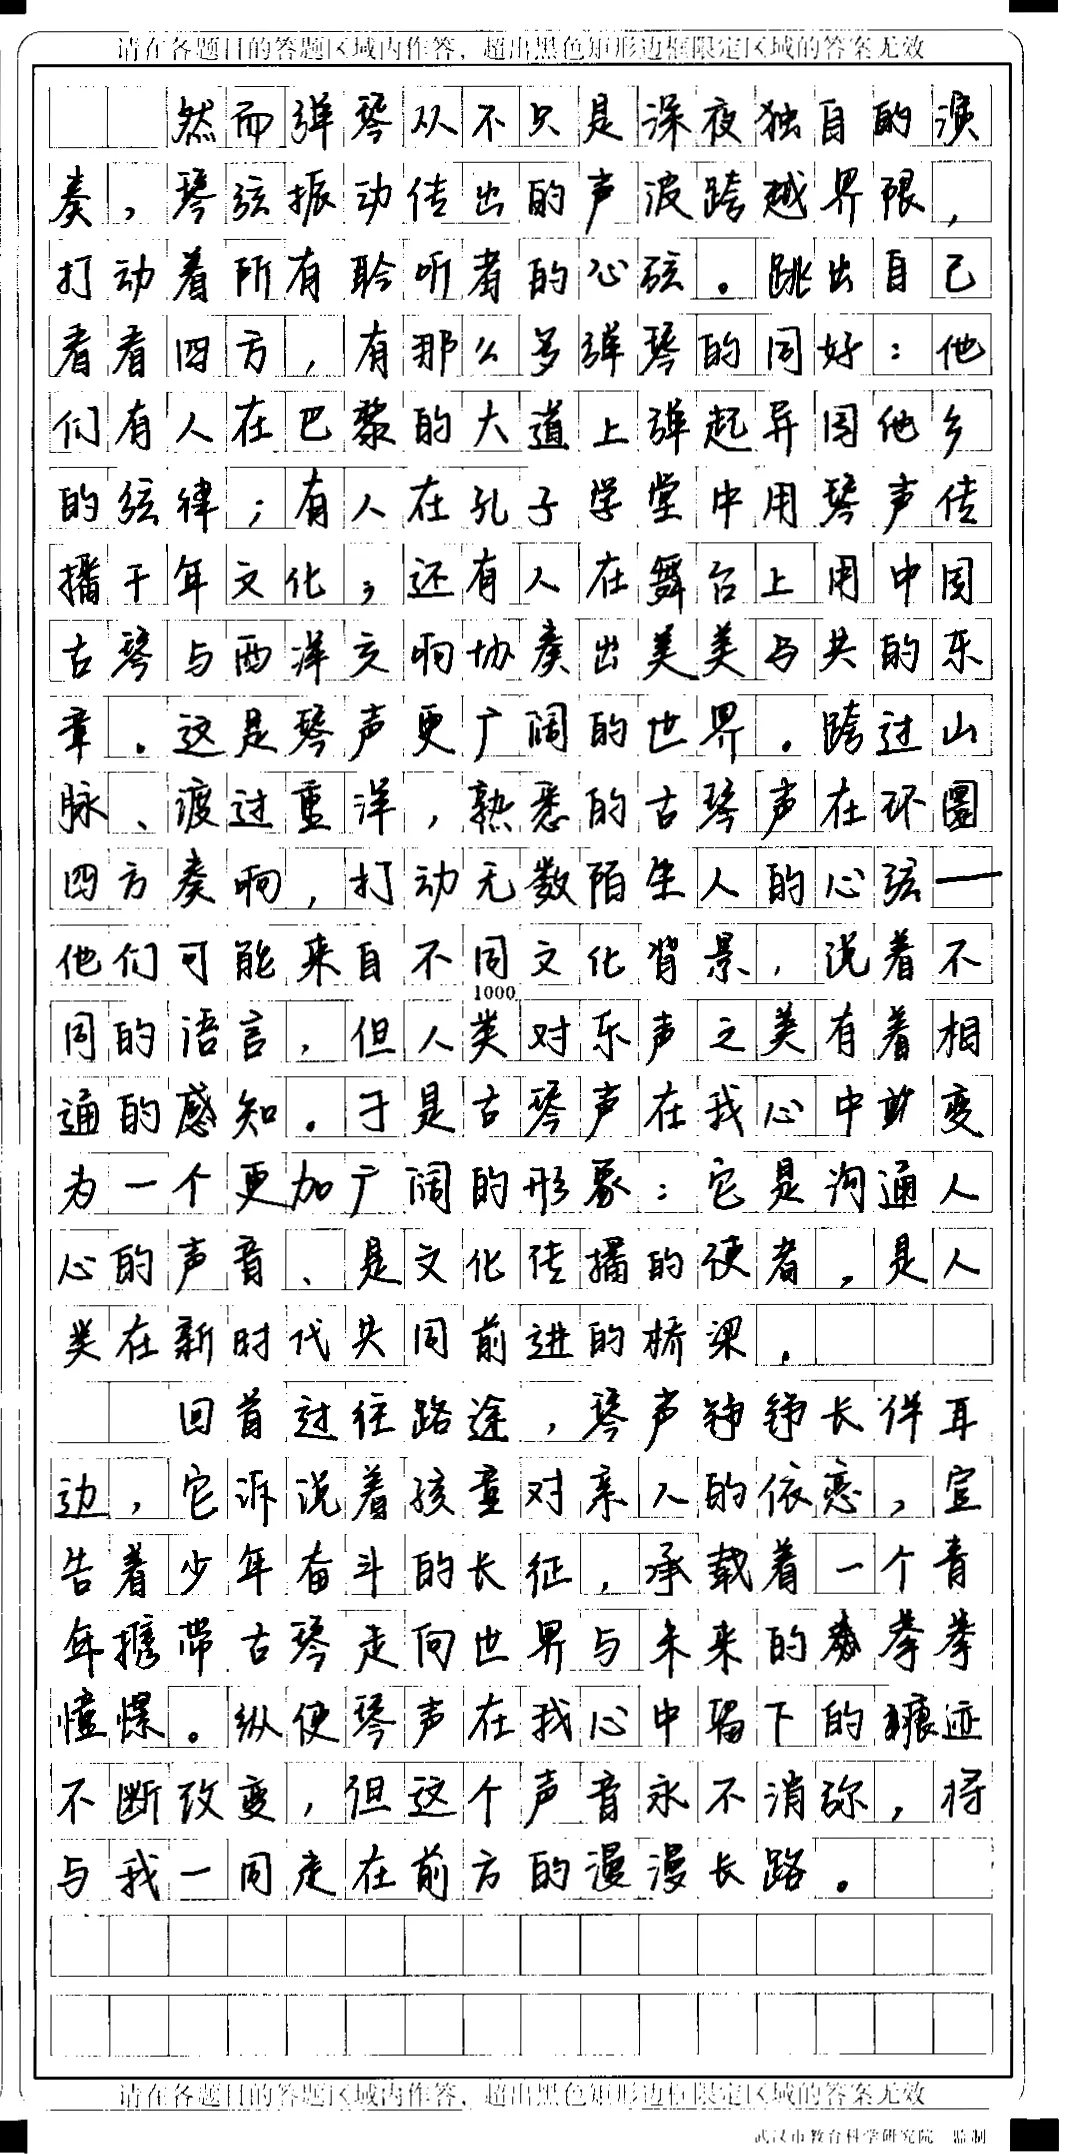 请在各题目的答题区域内作答，超出黑色矩形边框限定区域的答案无效
然而弹琴从不只是深夜独自的演
奏，琴弦振动传出的声波跨越界限，
打动着所有聆听者的心弦。跳出自己
看看四方，有那么多弹琴的同好：他
们有人在巴黎的大道上弹起异国他乡
的弦律；有人在孔子学堂中用琴声传
播千年文化，还有人在舞台上用中国
古琴与西洋交响协奏出美美与共的乐
章。这是琴声更广阔的世界。跨过山
脉、渡过重洋，熟悉的古琴声在环圜
四方奏响，打动无数陌生人的心弦——
他们可能来自不同文化背景，说着不
1000
同的语言，但人类对乐声之美有着相
通的感知。于是古琴声在我心中变
为一个更加广阔的形象：它是沟通人
心的声音、是文化传播的使者，是人
类在新时代共同前进的桥梁。
回首过往路途，琴声铮铮长伴耳
边，它诉说着孩童对亲人的依恋，宣
告着少年奋斗的长征，承载着一个青
年携带古琴走向世界与未来的拳拳
憧憬。纵使琴声在我心中留下的痕迹
不断改变，但这个声音永不消弥，将
与我一同走在前方的漫漫长路。
请在各题目的答题区域内作答，超出黑色矩形边框限定区域的答案无效
武汉市教育科学研究院 监制